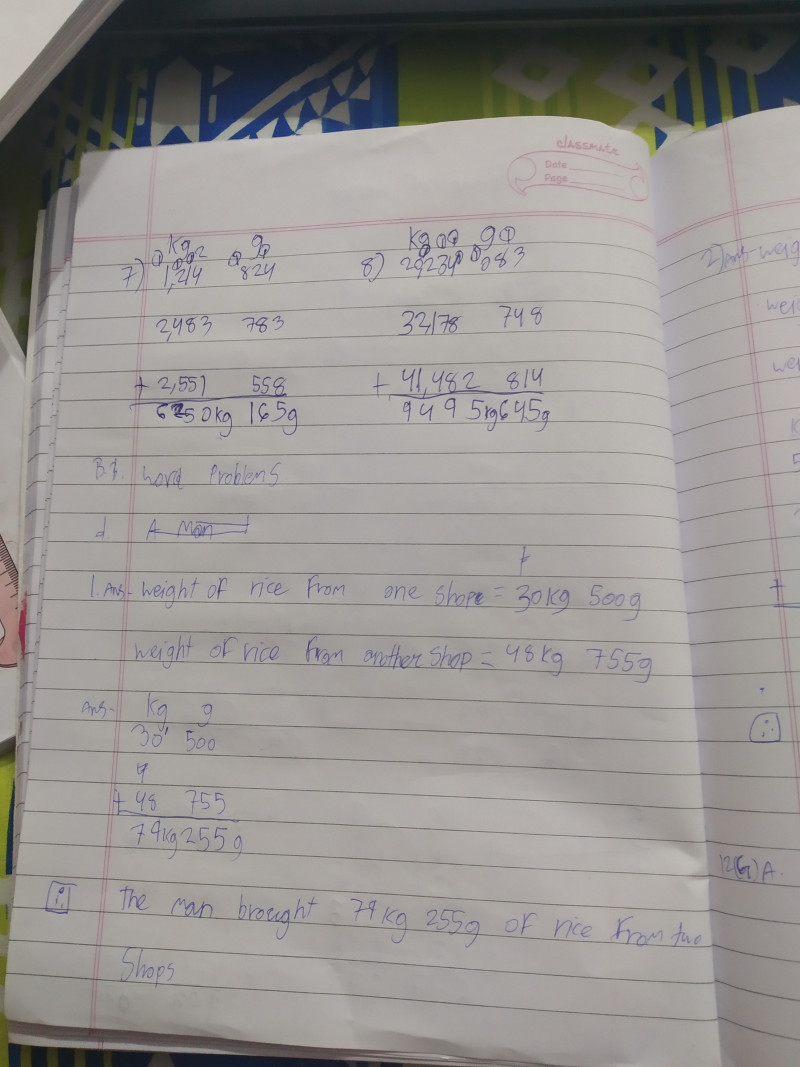 classmate
Date
Page
Kg g Kg g
7) 1,214 824 8) 20,234 083
2,483 783 32,178 748
+ 2,551 558 + 41,482 814
6250kg 165g 9495kg645g
Word Problems
d. A Man
1. Ans- Weight of rice from one shop = 30kg 500g
Weight of rice from another shop = 48kg 755g
Ans- Kg g
30 500
+ 48 755
79kg255g
The man brought 79kg 255g of rice from two
Shops
2) Ans- weig
weig
wei
K
5
+
12(G)A.